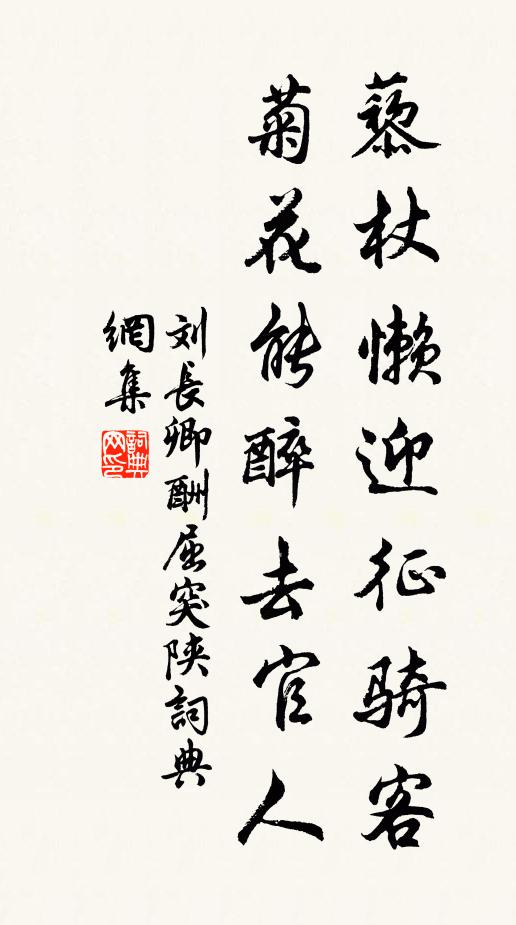 藜杖懒迎征骑客
菊花能醉去官人
刘長卿酬屈突陕詞典
網集
詞典
网印